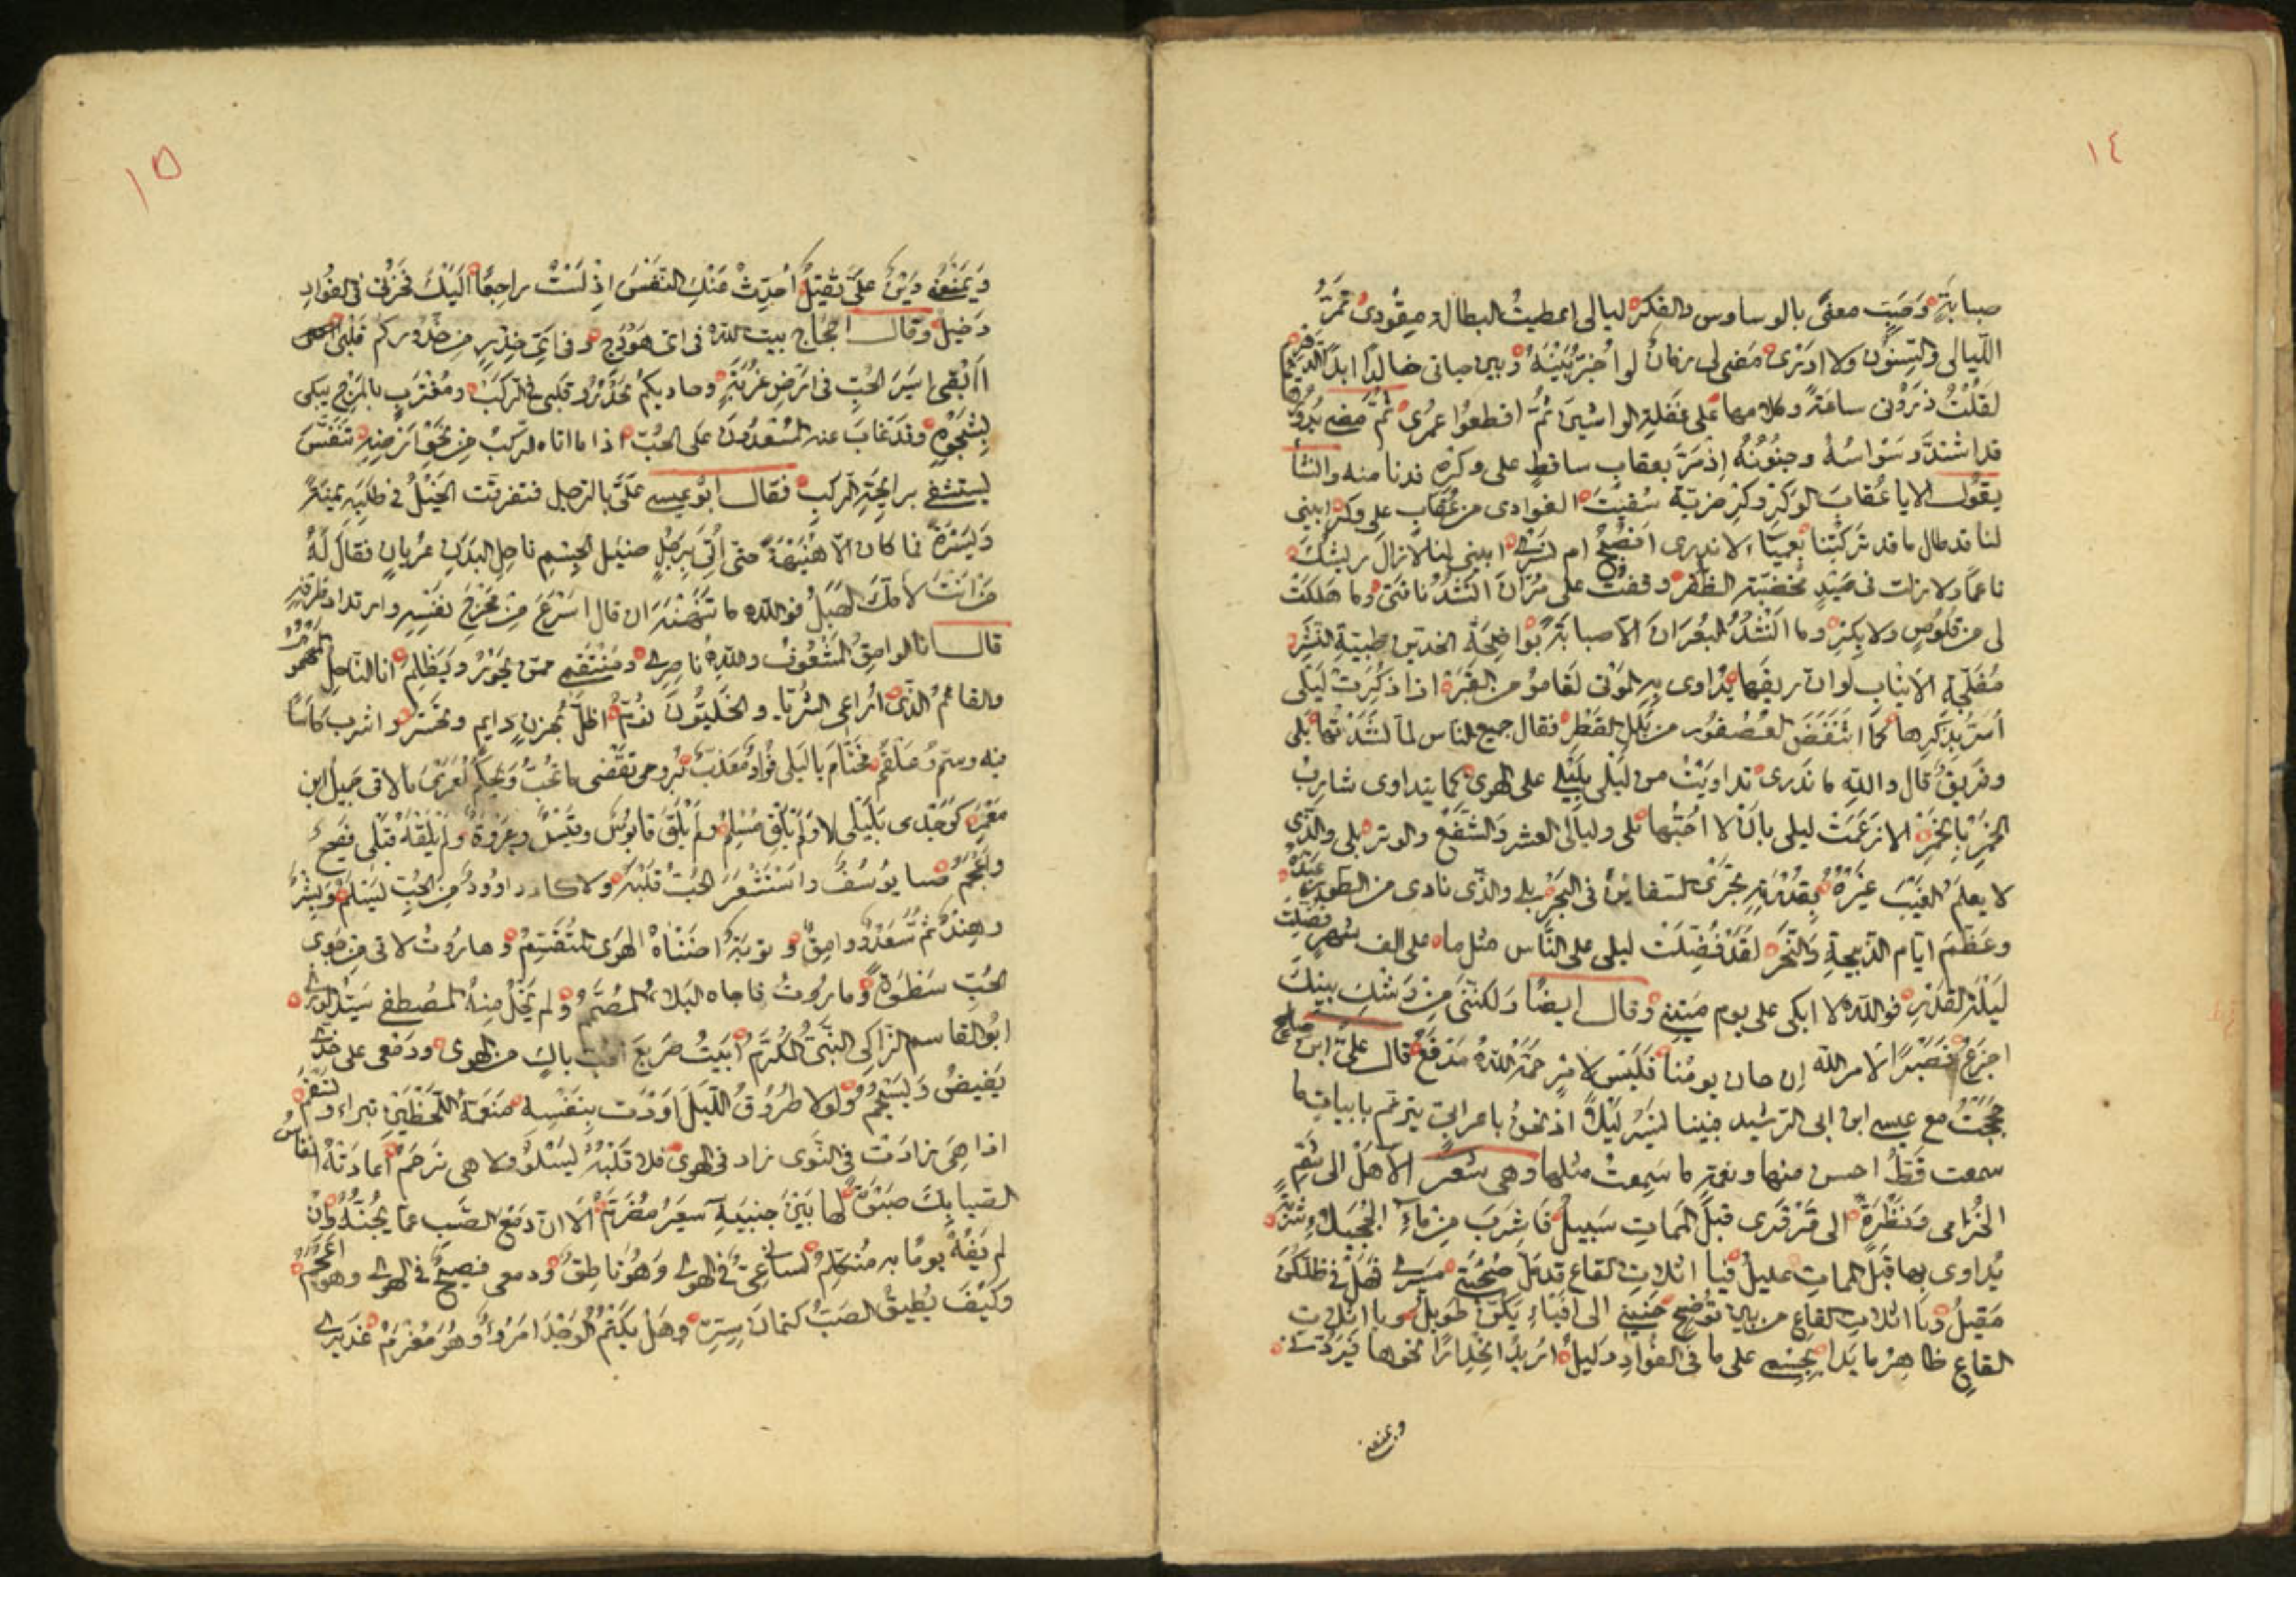 ١٤
صبابة وصب معنى بالوساوس والفكر ليالى اعطيت البطالة مِقْودى تمرّ
الليالى والسِنُون ولا ادرى مضى لى زمان لو اُخيّر بينه وبين حياتى خالدا ابد الدهر
لقلتُ ذرونى ساعة وكلامها على غفلة الواشين ثُمَّ اقطعُوا عمرى
قد اشتدّ وسواسُهُ وجنُونُهُ اذ مَرّ بعقاب ساقط على وكره فدنا منه وانشأ
يقول الا يا عُقاب الوكر وكر ضريّة سُقيتَ الغوادى من عُقاب على وكر ابينى
لنا قد طال ما قد تركتنا بعمياء لا ندرى انصبح ام نسرى ابينى لنا لا زال ريشك
ناعما ولا زلت فى صيد مخضبة الظفر وقفت على مرّان انشد ناقتى وما هلكت
لى من قلوص ولا بكر وما انشدُ البُعْرَان الا صبابة بواضحة الخدين طيبة النشر
مُفَلّجة الانياب لو ان ريقها يداوى به الموتى لقاموا من القبر اذا ذكرت ليلى
اُسَرّ بذكرها كما انتفض العصفور من بلل القطر فقال جميع الناس لما نشدتها بلى
وفريق قال والله ما ندرى تداويت من ليلى بليلى على الهوى كما يتداوى شارب
الخمر بالخمر الا زعمت ليلى بان لا احبها بلى وليالى العشر والشفع والوتر بلى والذى
لا يعلم الغيب غيره بقدرته مجرى السفاين فى البحر بلى والذى نادى من الطور عبده
وعظّم ايام الذبيحة والنحر لقد فُضّلت ليلى على الناس مثل ما على الف شهر فضلت
ليلة القدر فوالله لا ابكى على يوم ميتتى وقال ايضا ولكننى من وشك بينك
اجزع فصبرًا لامر الله ان حان يومُنا فليس لامر حَمَّهُ اللهُ مدفع قال علىّ ابن صالح
حججت مع عيسى ابن ابى الرشيد فبينا نسير ليلا اذ نحن باعرابى يترنم بابيات ما
سمعت قطُّ احسن منها ونغمة ما سمعت مثلها وهى شعر الا هل الى شم
الخزامى ونظرة الى قرقرى قبل الممات سبيل فاشرب من ماء الحجيلاء شربة
يُداوى بها قبل الممات عليل فيا اثلات القاع قد ملّ صحبتى مسيرى فهل فى ظلكن
مقيل ويا اثلات القاع من بين توضح حنينى الى افياءِ يكنّ طويل ويا اثلات
القاع ظاهر ما بدا بجسمى على ما فى الفؤاد دليل اُريد انحدارًا نحوها فيردنى
ويمنعه
١٥
ويمنعه دين علىّ ثقيل اُحدّث عنك النفس اذ لست راجعًا اليك فحزنى فى الفؤاد
دخيل وقال احجاج بيت الله فى اى هودج وفى اى خدر من خدوركم قلبى
اَاَبقى اسير الحب فى ارض غربة وحاديكم يحدو وقلبى فى الركب ومغترب بالمرج يبكى
بشجوه وقد غاب عنه المسعدُون على الحب اذا ما اتاه الركب من نحو ارضه تنفّس
يستشفى برايحة الركب فقال ابو عيسى علىّ بالرجل فتفرقت الخيل فى طلبه يمنة
ويسرة فما كان الا هُنيهة حتى اُتى برجل ضئيل الجسم ناحل البدن عُريان فقال له
من انت لامّك الهبل فوالله ما تنهنه ان قال اسرع من مخرج نفسه وارتداد طرفه
قال انا الوامق المشعُوف والله ناصرى ومنتقم ممن يجور ويظلم انا الناحل المهموم
والقائمُ الذى اُراعى الثريا والخليّون نُوّم اظل بحزن دايم وتحسّر واشرب كاسًا
فيه وسمّ وعلقم فحتّام يا ليلى فؤاد معذّب بروحى تقضى ما تحبّ ويحكم لعمرى ما لاقى جميل ابن
معمر كوجدى بليلى لا ولم يلق مُسلِم ولم يلق قابوس وقيسٌ وعروة ولم يلقه قبلى فصيح
واعجم صبا يوسف واستشعر الحبّ قلبه ولا كاد داوود من الحب يسلم وبشر
وهند ثم سعد ووامق وتوبة اضناه الهوى المتقسم وهاروت لاقى من جوى
الحب سطوة وماروت فاجاه البلاء المصمم ولم يخل منه المصطفى سيد الورى
ابو القاسم الزاكى النبىّ المكرّم ابيت صريع الحب باكٍ من الهوى ودمعى على خدى
يفيض ويسجم ولولا طروق الليل اودت بنفسه منعمة اللحظين تبراء وتسقم
اذا هى زادت فى النوى زاد فى الهوى فلا قلبه يسلو ولا هى ترحم اعادته انفاس
الصبا بك صبوة لها بين جنبيه سعير مضرم الا ان دمع الصب عما يجنه وان
لم يفُه يومًا به متكلم لسانى عىّ فى الهوى وهو ناطق ودمعى فصيح فى الهوى وهو اعجم
وكيف يُطيق الصبّ كتمان سره وهل يكتم الوجد امرؤ وهو مغرم غديرى